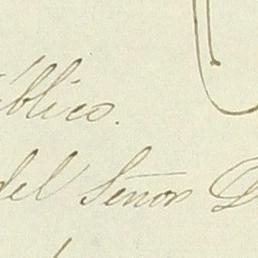 úblico.
del Señor D